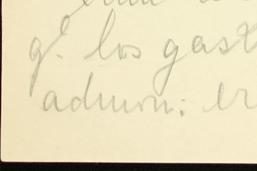 q! los gast
admon: er